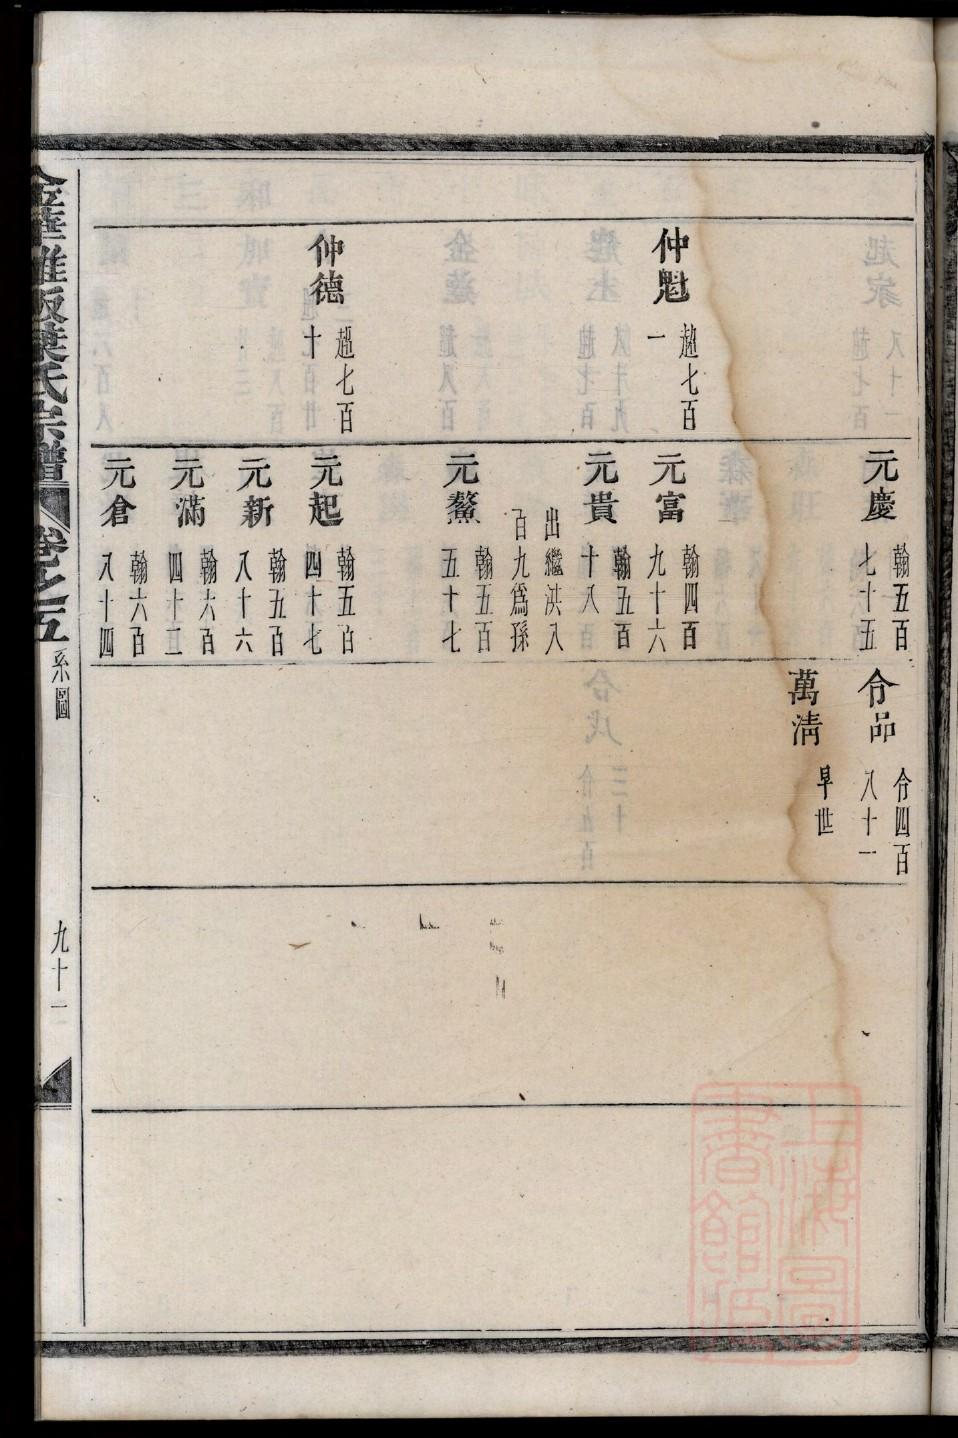 仲魁 趨七百一
仲德 趨七百十
元慶 翰五百七十五
元富 翰四百九十六
元貴 翰五百十八
出繼洪八百九爲孫
元鰲 翰五百五十七
元起 翰五百四十七
元新 翰五百八十六
元滿 翰六百四十三
元倉 翰六百八十四
令品 令四百八十一
萬淸 早世
葉氏宗譜
卷之五
系圖
九十一
上海圖書館藏